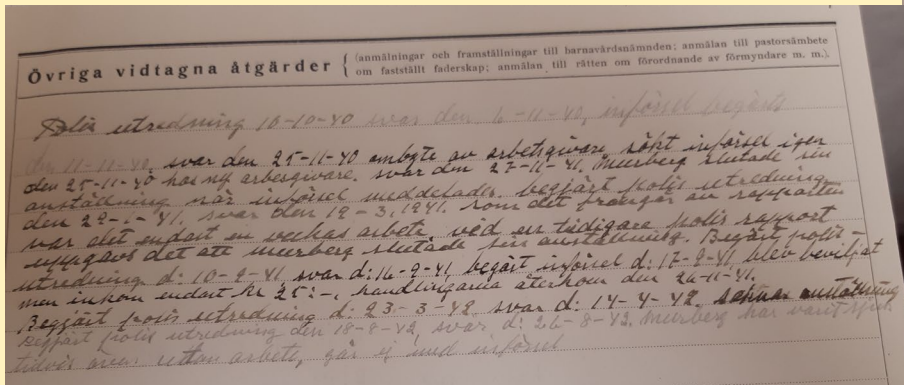 Övriga vidtagna åtgärder { (anmälningar och framställningar till barnavårdsnämnden; anmälan till pastorsämbete
om fastställt faderskap; anmälan till rätten om förordnande av förmyndare m. m.).
Polis utredning 10-10-40 svar den 6-11-40, införsel begärts
den 11-11-40, svar den 25-11-40 ombyte av arbetsgivare sökt införsel igen
den 25-11-40 hos ny arbesgivare. svar den 27-11-41. Murberg slutade sin
anställning när införsel meddelades. begjärt polis utredning
den 22-1-41. svar den 19-3.1941. som det framgår av rapporten
var det endast en veckas arbete, ved en tidigare polis rapport
uppgavs det att murberg slutade sin anställning. Begärt polis-
utredning d: 10-9-41 svar d: 16-9-41, begärt införsel d: 17-9-41 blev beviljat
men inkom endast kr 25:-, handlingarna återkom den 26-11-41.
Begjärt polis utredning d: 23-3-42 svar d: 14-4-42. saknar anställning
Begjärt polis utredning den 18-8-42, svar d: 26-8-42. Murberg har varit sjuk
tidvis även utan arbete, går ej med införsel